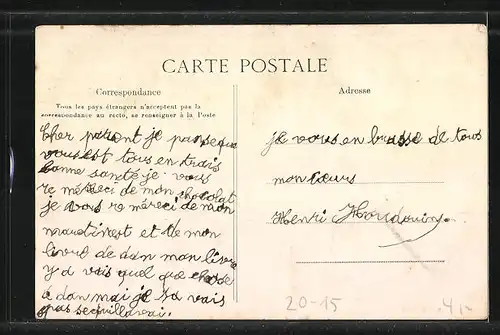 CARTE POSTALE
Correspondance
Tous les pays étrangers n'acceptent pas la
correspondance au recto, se renseigner à la Poste
Cher paront je panse que
vous est tous en trais
bonne santé je vous
re méreci de mon chocolat
je vous re méreci de mon
et de mon
livre de dan mon livre
y a vais quel que chose
a dan mai je sa vais
pas se quil la vai.
Adresse
je vous en brasse de tous
mon cœurs
Henri
20-15